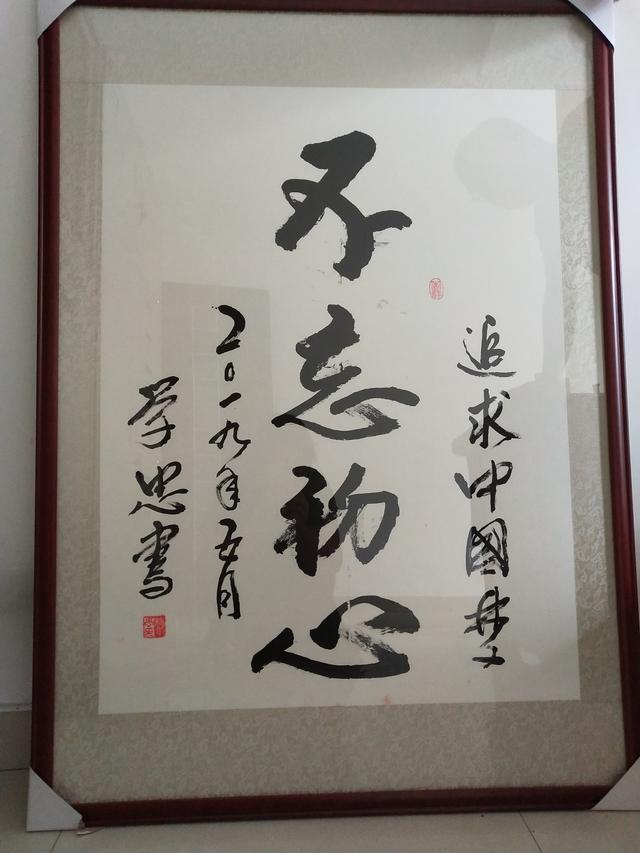 追求中國梦
不忘初心
二〇一九年五月
学忠書